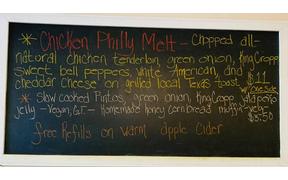 * Chicken Philly Melt - Chopped all-
natural chicken tenderlon, green onion, King Cropp
sweet bell peppers, white American, and $11
cheddar cheese on grilled local Texas toast w/ one side
* Slow cooked Pintos, green onion, King Cropp jalapeño
jelly - Vegan, G.F. - Homemade honey corn bread muffin - veg-
$8.50
free Refills on warm apple Cider